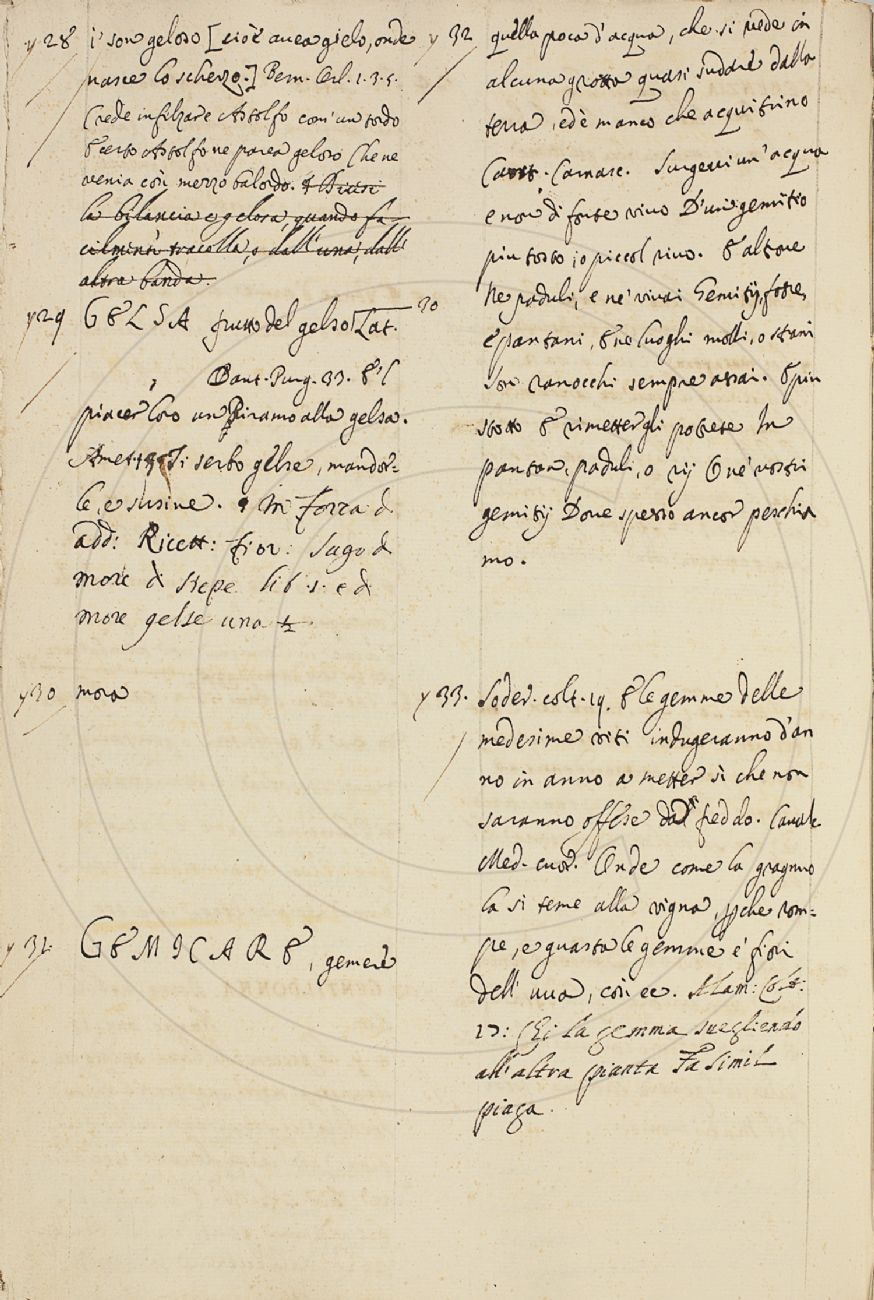 y 28 i' son geloso [cioè avea gielo, onde
nasce lo scherzo.] Bern. Orl. 1. 3. 5.
Crede infilzare Astolfo com' un tordo
E certo Astolfo ne parea geloso Che ne
venia così mezzo balordo.
la bilancia è gelosa, quando fa-
cilmente tracolla, o dall' una, o dall'
altra banda.
y 29 GELSA frutto del gelso Lat.
Dant. Purg. 33. E 'l
piacer loro un Piramo alla gelsa.
Ti serbo gelse, mandor-
le, e susine.
add: Ricett: Fior: Sugo di
more di siepe lib. 1. e di
more gelse una ½
y 30 mora
y 31. GEMICARE, gemere
y 32 quella poca d'acqua, che si vede in
alcuna grotta quasi sudare dalla
terra, ed è manco che acquitrino
Cant. Carnasc. Surgevi un' acqua
e non di forte vino D'un gemitio
piu tosto, o piccol rivo. E altrove
Ne paduli, e ne' vivai Gemitij, fosse,
e pantani, E ne luoghi molli, o strani
Son ranocchi sempre assai. E più
sotto E rimettergli potrete In
pantan, paduli, o rij O ne' vostri
gemitij Dove spesso ancor peschia
mo.
30
y 33. Soder. colt. 19. E le gemme delle
medesime viti indugeranno d'an
no in anno a metter sì che non
saranno offese dal freddo. Cavalc.
Med. cuor. Onde come la gragnuo
la si teme alla vigna, perche rom=
pe, e guasta le gemme e' fiori
dell' uva, così ec. Alam: Colt:
17: Chi la gemma svegliendo
all' altra pianta Fa simil
piaga.